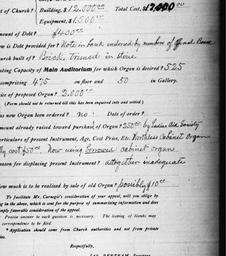 of Church? Building, $12,000.00 Total Cost, $
Equipment, $1,500.00
mount of Debt? $400.00
w is Debt Provided for? Note in bank endorsed by members of Official Board
urch built of? Brick, trimmed in stone
ating Capacity of Main Auditorium for which Organ is desired? 525
omprising 475 on floor and 50 in Gallery.
ice of proposed Organ? 2,000.00
(Form should not be returned till this has been enquired into and settled)
as new Organ been ordered? no Date of order?
mount already raised toward purchase of Organ? by Ladies Aid Society
rticulars of present Instrument, Age, Cost Price, Etc. Worthless Cabinet Organ
ly cost $50.00. Now using borrowed cabinet organ
eason for displacing present Instrument? altogether inadequate
ow much is to be realized by sale of old Organ? possibly $10.00
To facilitate Mr. Carnegie's consideration of your appeal, will you oblige by
ng in the above, which is sent for the purpose of summarizing information and does
imply favorable consideration of the appeal.
Precise answer to each question is necessary. The issuing of blanks may
correspondence to be changed.
* Application should come from Church authorities and not from private
Respectfully,